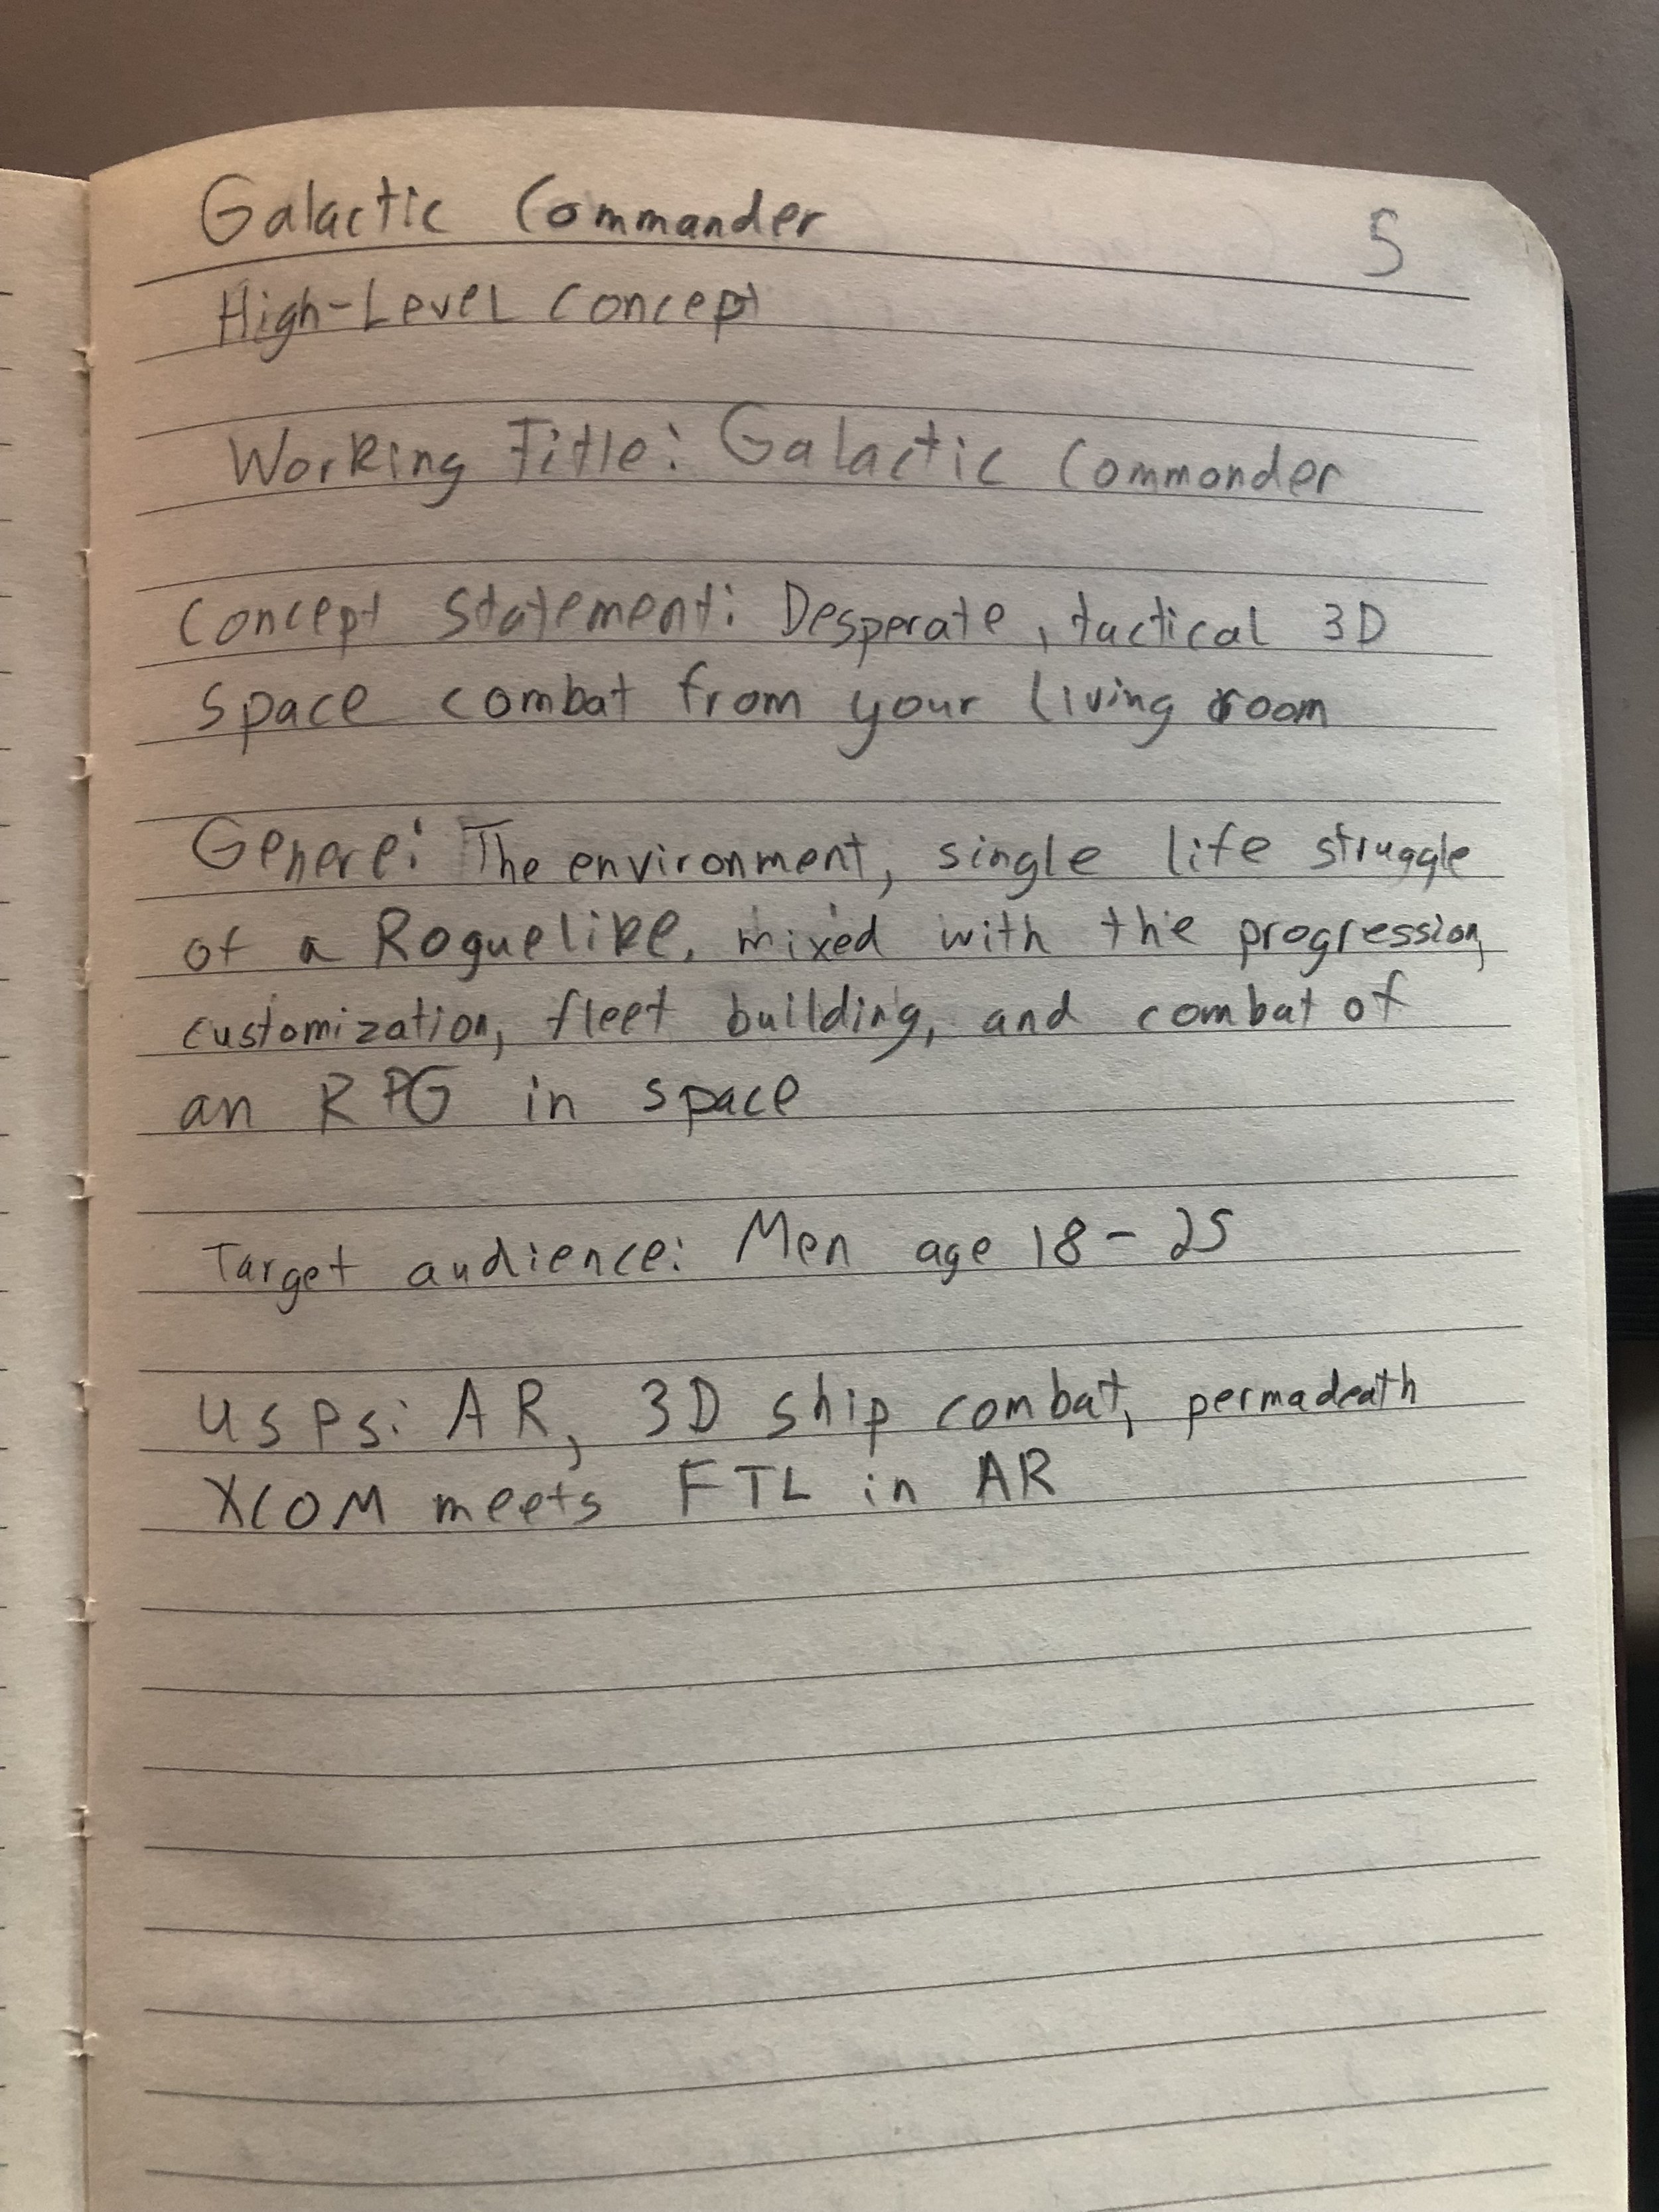 Galactic Commander 5
High-Level Concept
Working Title: Galactic Commander
Concept Statement: Desperate, tactical 3D
space combat from your living room
Genere: The environment, single life struggle
of a Roguelike, mixed with the progression,
customization, fleet building, and combat of
an RPG in space
Target audience: Men age 18-25
USPs: AR, 3D ship combat, permadeath
XCOM meets FTL in AR